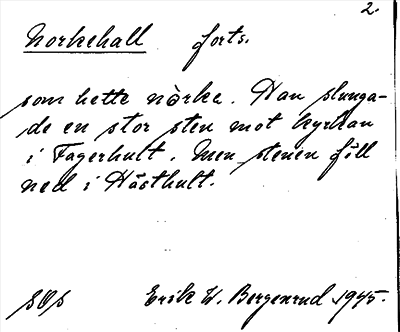 2.
Norkehall forts.
som hette nòrke. Han slunga-
de en stor sten mot kyrkan
i Fagerhult. Men stenen föll
ned i Hästhult.
Erik W. Bergenrud 1945.